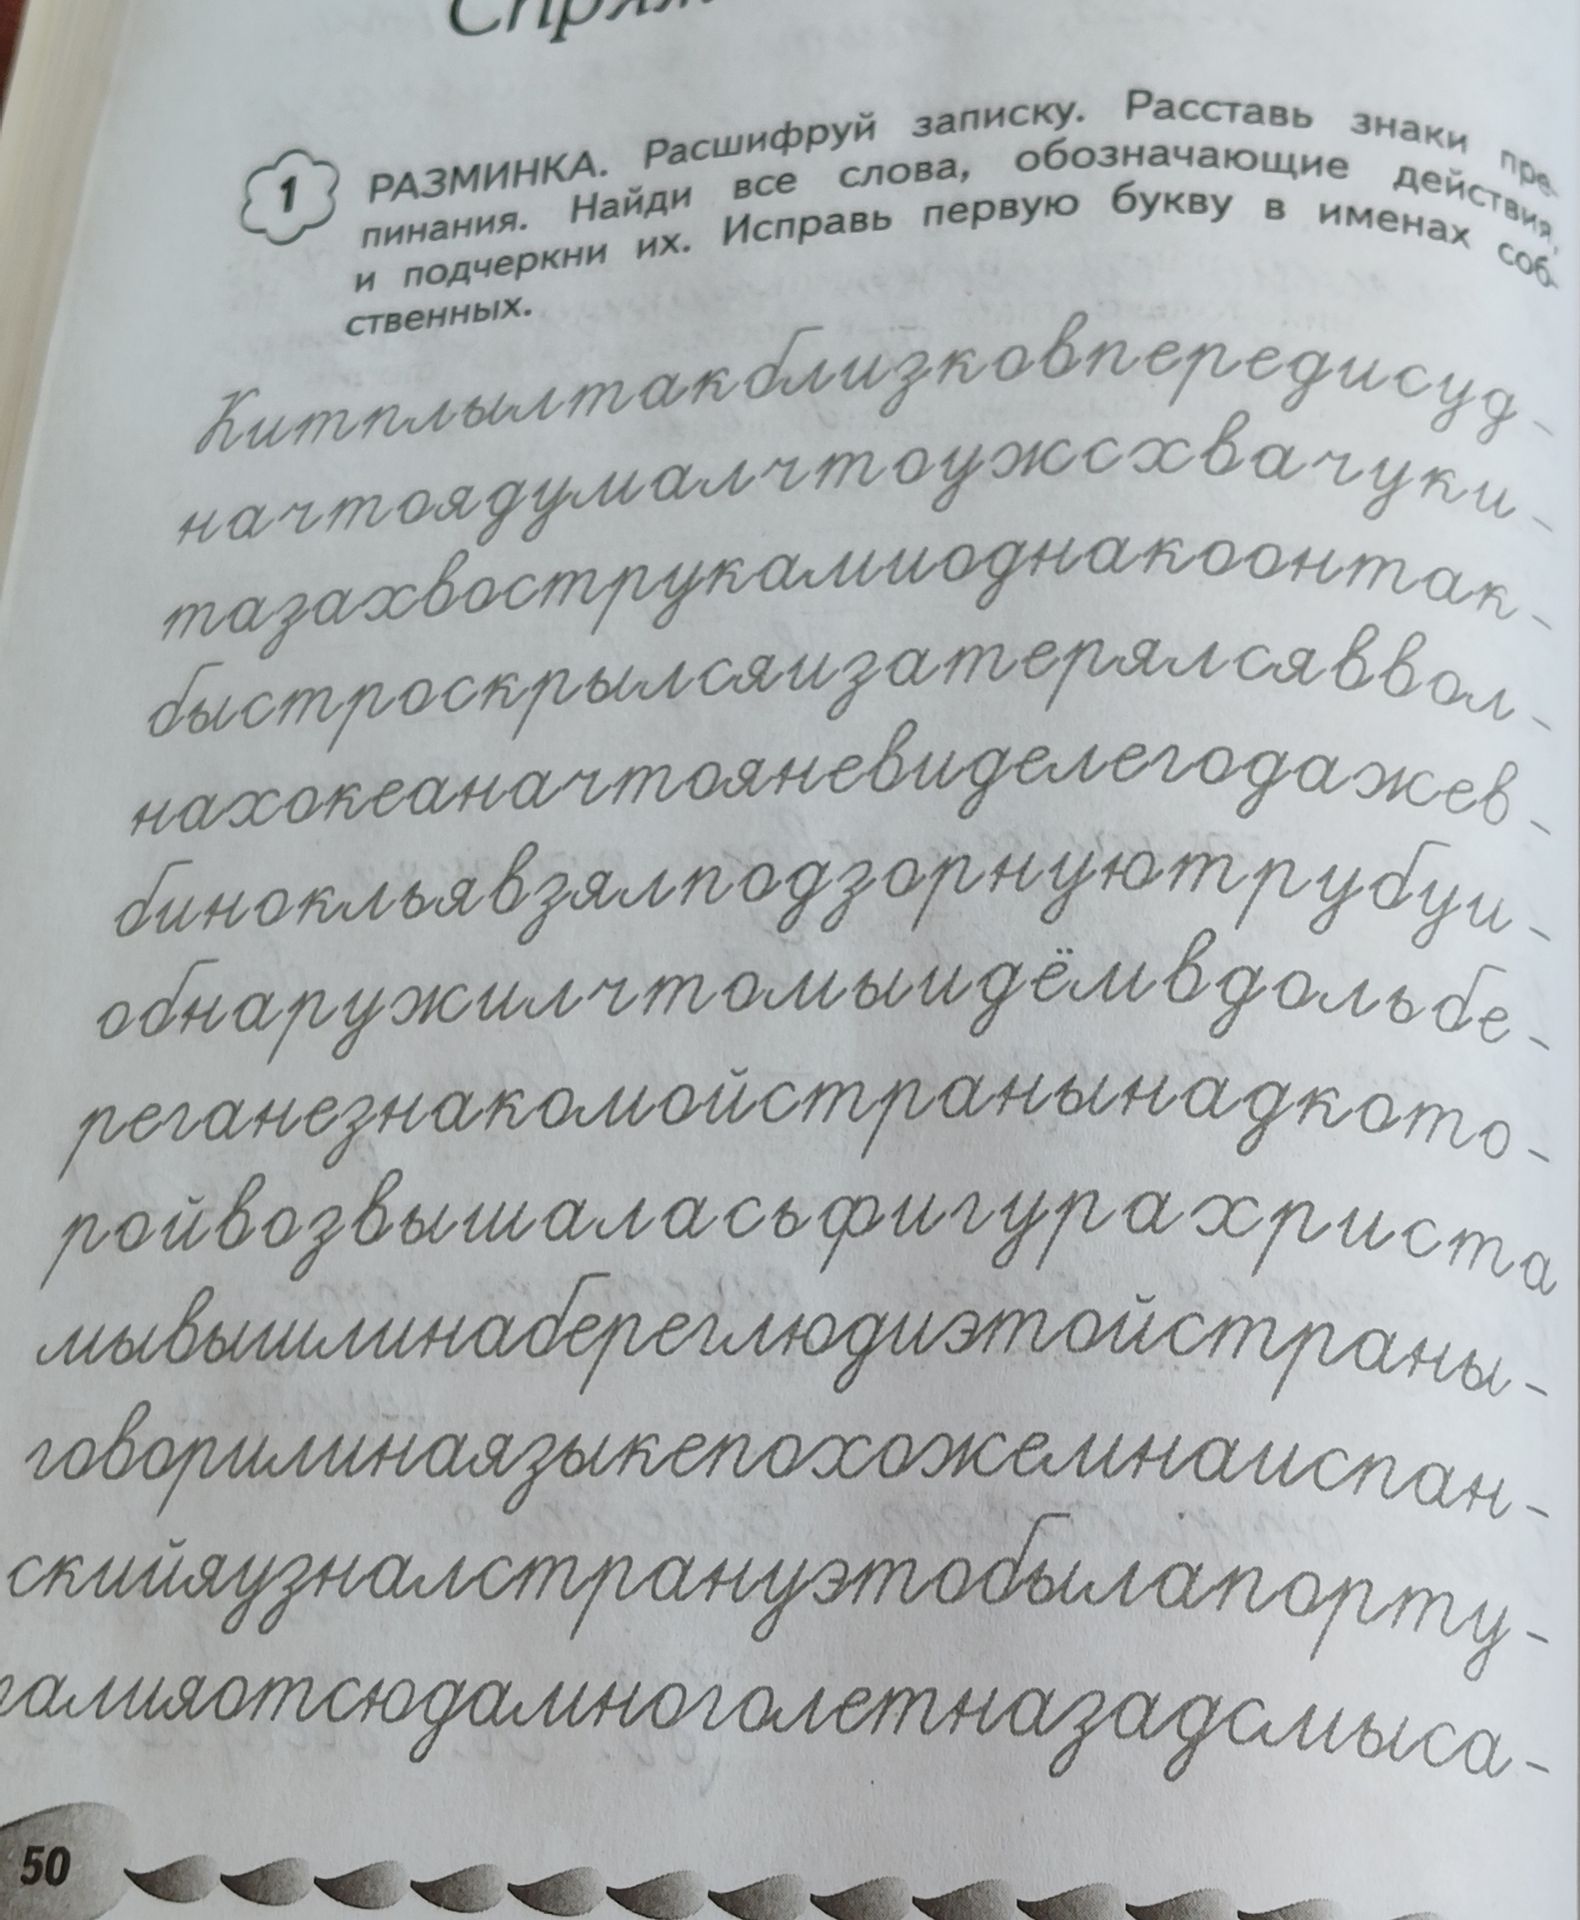 1 РАЗМИНКА. Расшифруй записку. Расставь знаки пре-
пинания. Найди все слова, обозначающие действия,
и подчеркни их. Исправь первую букву в именах соб-
ственных.
Китплылтакблизковпередисуд-
начтоядумалчтоужсхвачуки-
тазахвострукамиоднакоонтак-
быстроскрылсяизатерялсяввол-
нахокеаначтояневиделегодажев-
биноклья взялподзорнуютрубуи-
обнаружилчтомыидёмвдольбе-
реганезнакомойстранынадкото-
ройвозвышаласьфигурахриста
мывышлинаберeглюдиэтойстраны-
говорилинаязыкепохожемнаиспан-
скийяузналстрануэтобылапорту-
галияотсюдамноголетназадсмыса-
50